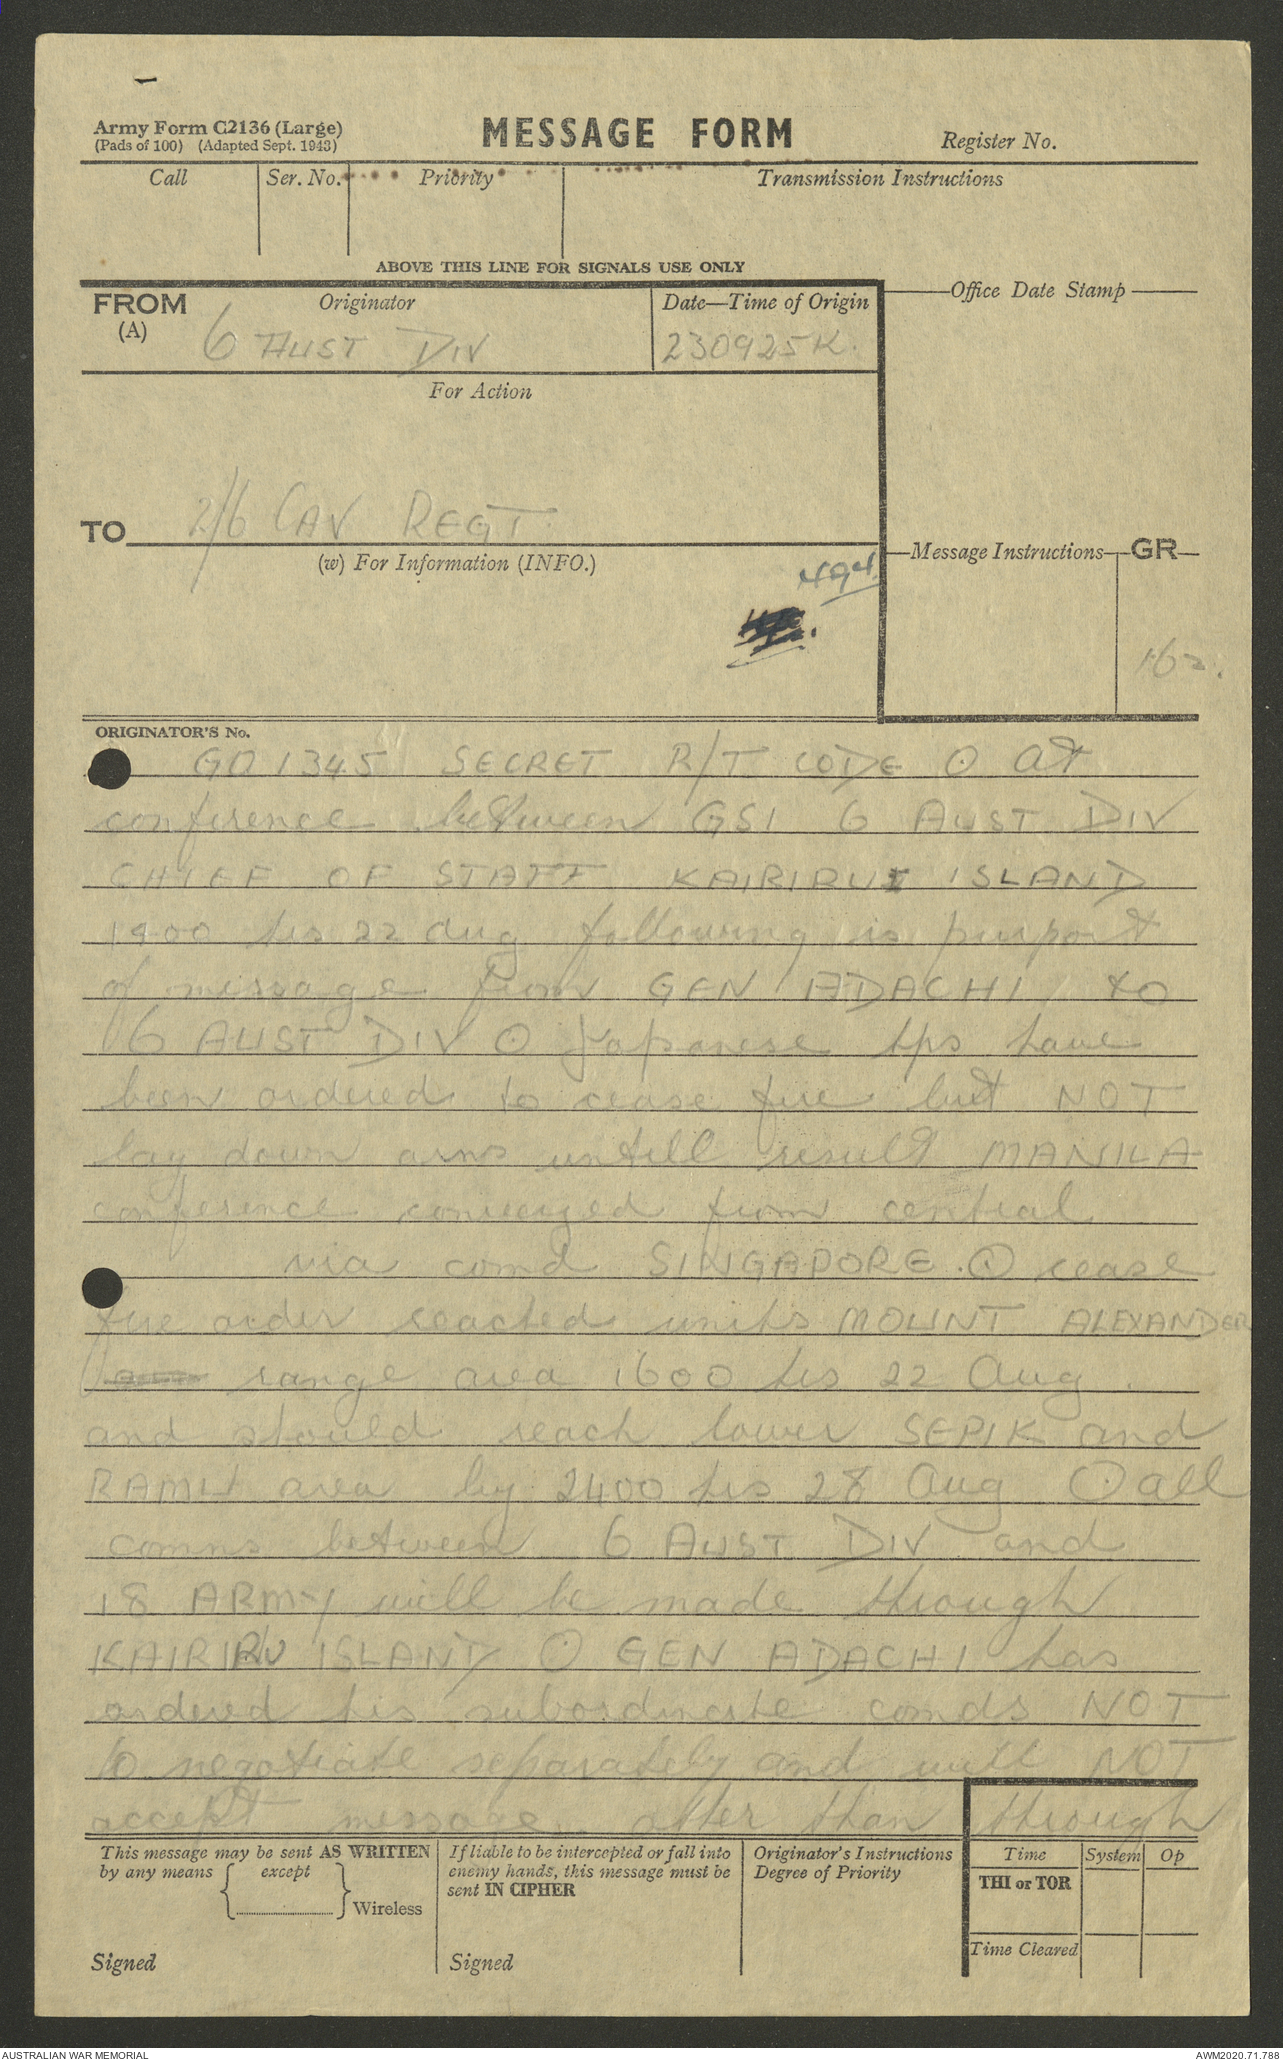 Army Form C2136 (Large)
(Pads of 100) (Adapted Sept. 1943)
MESSAGE FORM
Register No.
Call
Ser. No.
Priority
Transmission Instructions
ABOVE THIS LINE FOR SIGNALS USE ONLY
FROM
(A)
Originator
6 AUST DIV
Date—Time of Origin
230925K.
Office Date Stamp
For Action
TO 2/6 CAV REGT
(w) For Information (INFO.)
494.
Message Instructions
GR
162.
ORIGINATOR'S No.
GO1345 SECRET R/T CODE O at
conference between GSI 6 AUST DIV
CHIEF OF STAFF KAIRIRU ISLAND
1400 hrs 22 Aug following is purport
of message from GEN ADACHI to
6 AUST DIV O Japanese tps have
been ordered to cease fire but NOT
lay down arms untill result MANILA
conference from central
via comd SINGAPORE. O cease
fire order reached units MOUNT ALEXANDER
range area 1600 hrs 22 Aug.
and should reach lower SEPIK and
RAMU area by 2400 hrs 28 Aug O all
comms between 6 AUST DIV and
18 ARMY will be made through
KAIRIRU ISLAND O GEN ADACHI has
ordered his subordinate comds NOT
to negotiate separately and will NOT
accept message other than through
This message may be sent AS WRITTEN
by any means except
Wireless
Signed
If liable to be intercepted or fall into
enemy hands, this message must be
sent IN CIPHER
Signed
Originator's Instructions
Degree of Priority
Time
System
Op
THI or TOR
Time Cleared
AUSTRALIAN WAR MEMORIAL
AWM2020.71.788